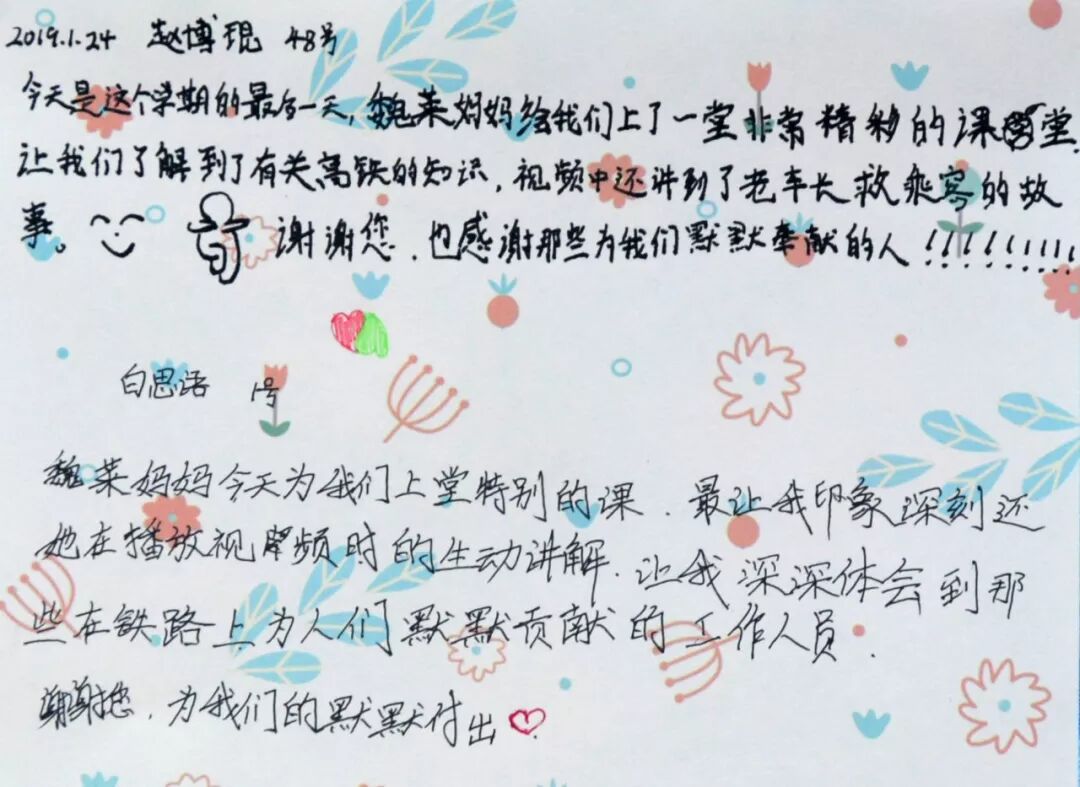 2019.1.24 赵博琨 48号
今天是这个学期的最后一天,魏莱妈妈给我们上了一堂非常精彩的课堂.
让我们了解到了有关高铁的知识,视频中还讲到了老车长救乘客的故
事。 谢谢您,也感谢那些为我们默默奉献的人!!!!!!!!!!
白思语 1号
魏莱妈妈今天为我们上堂特别的课.最让我印象深刻还
她在播放视频时的生动讲解.让我深深体会到那
些在铁路上为人们默默贡献的工作人员.
谢谢您.为我们的默默付出